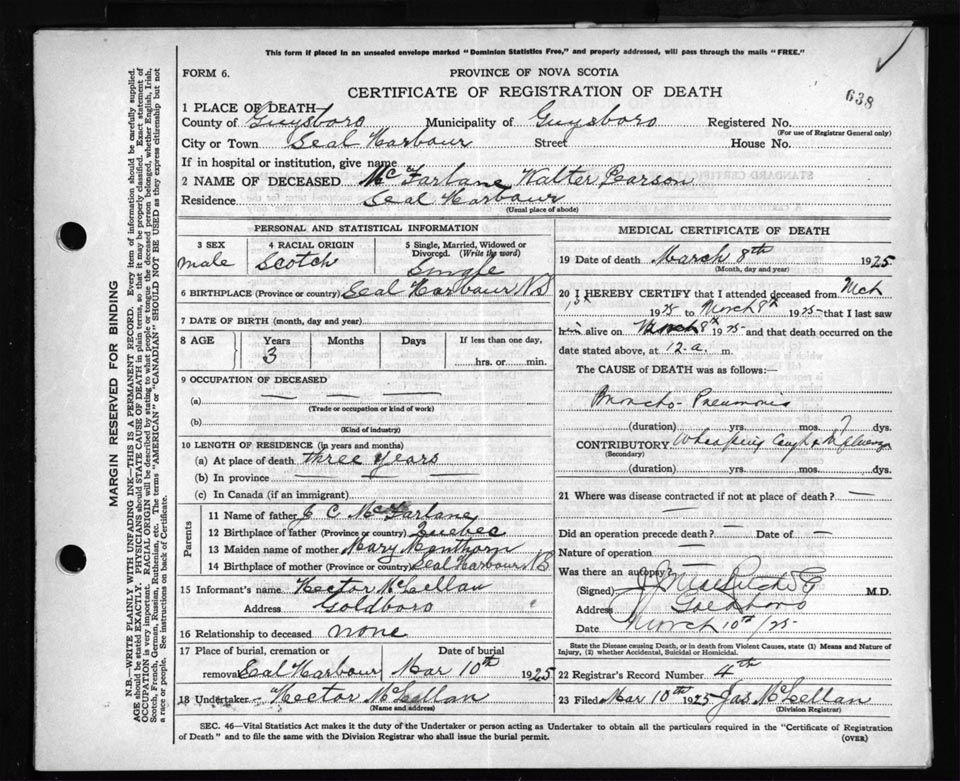 This form if placed in an unsealed envelope marked "Dominion Statistics Free," and properly addressed, will pass through the mails "FREE."
FORM 6.
PROVINCE OF NOVA SCOTIA
CERTIFICATE OF REGISTRATION OF DEATH
638
1 PLACE OF DEATH—
County of Guysboro Municipality of Guysboro Registered No.
(For use of Registrar General only)
City or Town Seal Harbour Street House No.
If in hospital or institution, give name
2 NAME OF DECEASED McFarlane Walter Pearson
Residence Seal Harbour
(Usual place of abode)
PERSONAL AND STATISTICAL INFORMATION
3 SEX 4 RACIAL ORIGIN 5 Single, Married, Widowed or Divorced. (Write the word)
male Scotch Single
6 BIRTHPLACE (Province or country) Seal Harbour NS
7 DATE OF BIRTH (month, day and year)
8 AGE Years Months Days If less than one day,
3 hrs. or min.
9 OCCUPATION OF DECEASED
(a) — — —
(Trade or occupation or kind of work)
(b)
(Kind of industry)
10 LENGTH OF RESIDENCE (in years and months)
(a) At place of death three years
(b) In province
(c) In Canada (if an immigrant)
Parents
11 Name of father J C McFarlane
12 Birthplace of father (Province or country) Quebec
13 Maiden name of mother Mary Manthorn
14 Birthplace of mother (Province or country) Seal Harbour NS
15 Informant's name Hector McLellan
Address Goldboro
16 Relationship to deceased none
17 Place of burial, cremation or Date of burial
removal Seal Harbour Mar 10th 1925
18 Undertaker Hector McLellan
(Name and address)
MEDICAL CERTIFICATE OF DEATH
19 Date of death March 8th 1925
(Month, day and year)
20 I HEREBY CERTIFY that I attended deceased from Mch
1925 to March 8th 1925 that I last saw
him alive on March 8th 1925 and that death occurred on the
date stated above, at 12.a. m.
The CAUSE of DEATH was as follows:—
Broncho-Pneumonia
(duration) yrs. mos. 7 dys.
CONTRIBUTORY Whooping Cough & Influenza
(Secondary)
(duration) yrs. mos. dys.
21 Where was disease contracted if not at place of death? —
Did an operation precede death? — Date of —
Nature of operation —
Was there an autopsy? —
(Signed) M.D.
Address Goldboro
Date March 10th/25
State the Disease causing Death, or in death from Violent Causes, state (1) Means and Nature of Injury, (2) whether Accidental, Suicidal or Homicidal.
22 Registrar's Record Number 4th
23 Filed Mar 10th 1925 Jas McLellan
(Division Registrar)
SEC. 46—Vital Statistics Act makes it the duty of the Undertaker or person acting as Undertaker to obtain all the particulars required in the "Certificate of Registration
of Death" and to file the same with the Division Registrar who shall issue the burial permit.
(OVER)
MARGIN RESERVED FOR BINDING
N.B.—WRITE PLAINLY WITH UNFADING INK—THIS IS A PERMANENT RECORD. Every item of information should be carefully supplied.
AGE should be stated EXACTLY. PHYSICIANS should STATE CAUSE OF DEATH in plain terms, so that it may be properly classified. Exact statement of
OCCUPATION is very important. RACIAL ORIGIN will be described by stating to what people or tongue the deceased person belonged, whether English, Irish,
Scotch, French, German, Russian, Ruthenian, etc. The terms "AMERICAN" or "CANADIAN" SHOULD NOT BE USED as they express citizenship but not
a race or people. See instructions on back of Certificate.